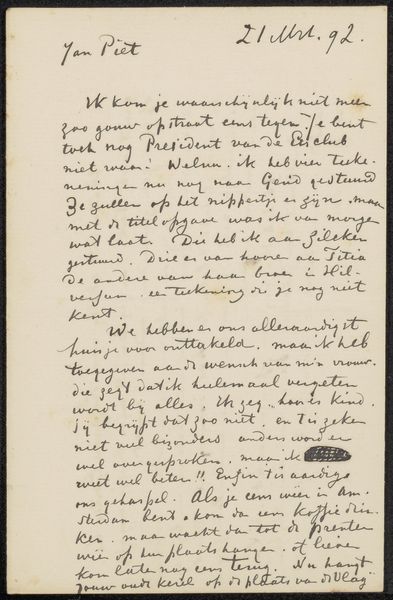 21 Mrt. 92.
Jan Piet
Ik kom je waarschijnlijk niet meer
zoo gouw op straat eens tegen. Je bent
toch nog President van de Etsclub
niet waar? Welnu. ik heb vier teeke-
neningen nu nog naar Gend gestuurd
Ze zullen op het nippertje er zijn. maar
met de titelopgave was ik van morgen
wat laat. Die heb ik aan Zilcken
gestuurd. Drie er van hooren aan Titia
De andere van haar broer in Hil-
versum een teekening die je nog niet
kent.
We hebben er ons alleraardigst
huisje voor onttakeld. maar ik heb
toegegeven aan de wensch van m'n vrouw.
die zegt dat ik heelemaal vergeten
wordt bij alles. Ik zeg. hoor is kind.
jij begrijpt dat zoo niet. en t is zeker
niet veel bizonders anders word er
wel over gesproken. maar ik
weet wel beter!! Enfin t is aardig
ons gehaspel. Als je eens wéér in Am-
sterdam bent. kom dan een koffie drin-
ken. maar wacht dan tot de prenten
wéér op hun plaats hangen. of liever
kom later nog eens terug. Nu hangt
jouw oude kerel op de plaats van de Vlag